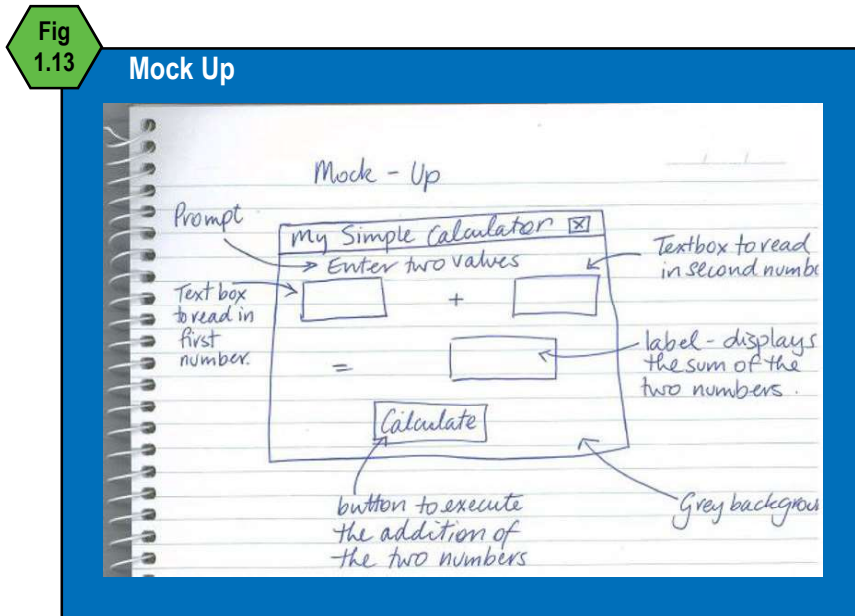 Fig
1.13
Mock Up
Mock - Up
Prompt
My Simple Calculator
Enter two values
Textbox to read
in second numbe
Text box
to read in
first
number.
+
=
label - displays
the sum of the
two numbers.
Calculate
button to execute
the addition of
the two numbers
Grey backgrou